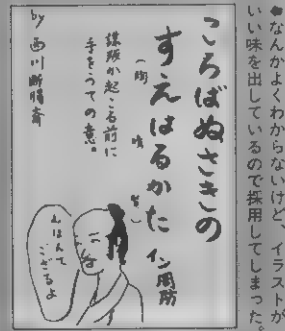 ●なんかよくわからないけど、イラストが
いい味を出しているので採用してしまった。
ころばぬさきの
すえはるかた イン周防
(陶 晴 賢)
謀叛が起こる前に
手をうての意。
by 西川断腸斎
んはんて
ござるよ